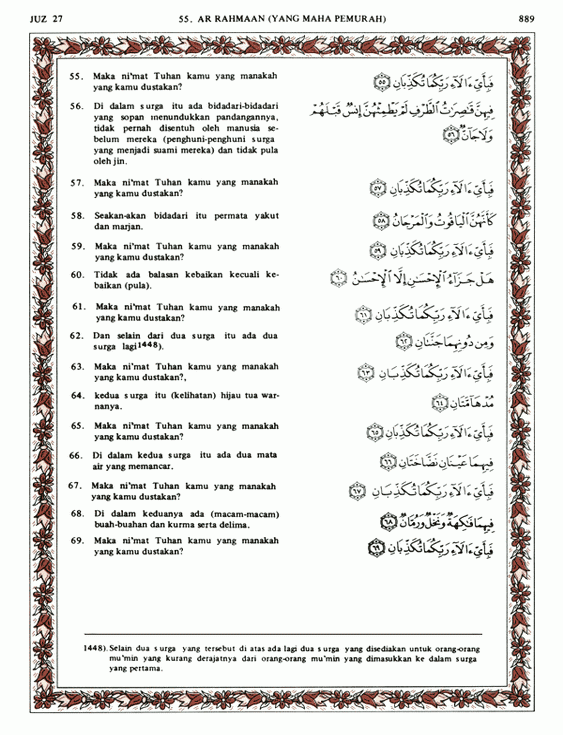 JUZ 27 55. AR RAHMAAN (YANG MAHA PEMURAH) 889
55. Maka ni'mat Tuhan kamu yang manakah
yang kamu dustakan?
فَبِأَيِّ ءَالَآءِ رَبِّكُمَا تُكَذِّبَانِ ﴿٥٥﴾
56. Di dalam surga itu ada bidadari-bidadari
yang sopan menundukkan pandangannya,
tidak pernah disentuh oleh manusia se-
belum mereka (penghuni-penghuni surga
yang menjadi suami mereka) dan tidak pula
oleh jin.
فِيهِنَّ قَٰصِرَٰتُ ٱلطَّرْفِ لَمْ يَطْمِثْهُنَّ إِنسٌ قَبْلَهُمْ
وَلَا جَآنٌّ ﴿٥٦﴾
57. Maka ni'mat Tuhan kamu yang manakah
yang kamu dustakan?
فَبِأَيِّ ءَالَآءِ رَبِّكُمَا تُكَذِّبَانِ ﴿٥٧﴾
58. Seakan-akan bidadari itu permata yakut
dan marjan.
كَأَنَّهُنَّ ٱلْيَاقُوتُ وَٱلْمَرْجَانُ ﴿٥٨﴾
59. Maka ni'mat Tuhan kamu yang manakah
yang kamu dustakan?
فَبِأَيِّ ءَالَآءِ رَبِّكُمَا تُكَذِّبَانِ ﴿٥٩﴾
60. Tidak ada balasan kebaikan kecuali ke-
baikan (pula).
هَلْ جَزَآءُ ٱلْإِحْسَٰنِ إِلَّا ٱلْإِحْسَٰنُ ﴿٦٠﴾
61. Maka ni'mat Tuhan kamu yang manakah
yang kamu dustakan?
فَبِأَيِّ ءَالَآءِ رَبِّكُمَا تُكَذِّبَانِ ﴿٦١﴾
62. Dan selain dari dua surga itu ada dua
surga lagi1448).
وَمِن دُونِهِمَا جَنَّتَانِ ﴿٦٢﴾
63. Maka ni'mat Tuhan kamu yang manakah
yang kamu dustakan?,
فَبِأَيِّ ءَالَآءِ رَبِّكُمَا تُكَذِّبَانِ ﴿٦٣﴾
64. kedua surga itu (kelihatan) hijau tua war-
nanya.
مُدْهَآمَّتَانِ ﴿٦٤﴾
65. Maka ni'mat Tuhan kamu yang manakah
yang kamu dustakan?
فَبِأَيِّ ءَالَآءِ رَبِّكُمَا تُكَذِّبَانِ ﴿٦٥﴾
66. Di dalam kedua surga itu ada dua mata
air yang memancar.
فِيهِمَا عَيْنَانِ نَضَّاخَتَانِ ﴿٦٦﴾
67. Maka ni'mat Tuhan kamu yang manakah
yang kamu dustakan?
فَبِأَيِّ ءَالَآءِ رَبِّكُمَا تُكَذِّبَانِ ﴿٦٧﴾
68. Di dalam keduanya ada (macam-macam)
buah-buahan dan kurma serta delima.
فِيهِمَا فَٰكِهَةٌ وَنَخْلٌ وَرُمَّانٌ ﴿٦٨﴾
69. Maka ni'mat Tuhan kamu yang manakah
yang kamu dustakan?
فَبِأَيِّ ءَالَآءِ رَبِّكُمَا تُكَذِّبَانِ ﴿٦٩﴾
1448). Selain dua surga yang tersebut di atas ada lagi dua surga yang disediakan untuk orang-orang
mu'min yang kurang derajatnya dari orang-orang mu'min yang dimasukkan ke dalam surga
yang pertama.